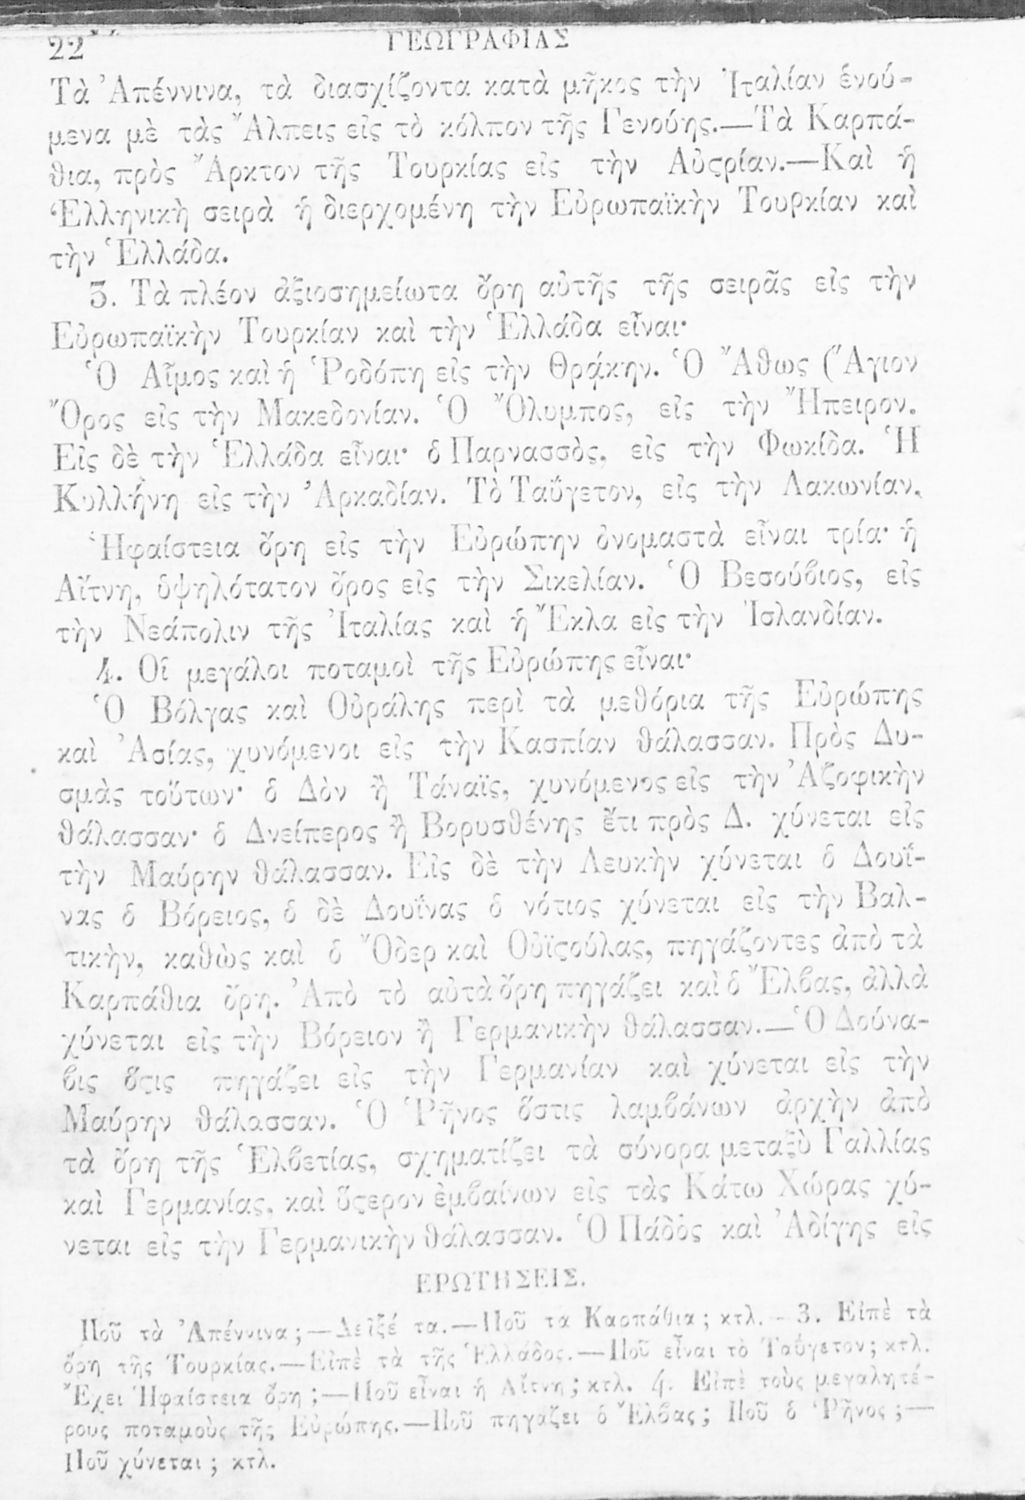 22 ΓΕΩΓΡΑΦΙΑΣ
Τὰ Ἀπέννινα, τὰ διασχίζοντα κατὰ μῆκος τὴν Ἰταλίαν ἑνού-
μενα μὲ τὰς Ἄλπεις εἰς τὸ κόλπον τῆς Γενούης.—Τὰ Καρπά-
θια, πρὸς Ἄρκτον τῆς Τουρκίας εἰς τὴν Αὐςρίαν.—Καὶ ἡ
Ἑλληνικὴ σειρὰ ἡ διερχομένη τὴν Εὐρωπαϊκὴν Τουρκίαν καὶ
τὴν Ἑλλάδα.
3. Τὰ πλέον ἀξιοσημείωτα ὄρη αὐτῆς τῆς σειρᾶς εἰς τὴν
Εὐρωπαϊκὴν Τουρκίαν καὶ τὴν Ἑλλάδα εἶναι·
Ὁ Αἷμος καὶ ἡ Ῥοδόπη εἰς τὴν Θράκην. Ὁ Ἄθως (Ἅγιον
Ὄρος εἰς τὴν Μακεδονίαν. Ὁ Ὄλυμπος, εἰς τὴν Ἤπειρον.
Εἰς δὲ τὴν Ἑλλάδα εἶναι· ὁ Παρνασσὸς, εἰς τὴν Φωκίδα. Ἡ
Κυλλήνη εἰς τὴν Ἀρκαδίαν. Τὸ Ταΰγετον, εἰς τὴν Λακωνίαν.
Ἡφαίστεια ὄρη εἰς τὴν Εὐρώπην ὀνομαστὰ εἶναι τρία· ἡ
Αἴτνη, ὑψηλότατον ὄρος εἰς τὴν Σικελίαν. Ὁ Βεσούβιος, εἰς
τὴν Νεάπολιν τῆς Ἰταλίας καὶ ἡ Ἔκλα εἰς τὴν Ἰσλανδίαν.
4. Οἱ μεγάλοι ποταμοὶ τῆς Εὐρώπης εἶναι·
Ὁ Βόλγας καὶ Οὐράλης περὶ τὰ μεθόρια τῆς Εὐρώπης
καὶ Ἀσίας, χυνόμενοι εἰς τὴν Κασπίαν θάλασσαν. Πρὸς Δυ-
σμὰς τούτων· ὁ Δὸν ἢ Τάναϊς, χυνόμενος εἰς τὴν Ἀζοφικὴν
θάλασσαν· ὁ Δνείπερος ἢ Βορυσθένης ἔτι πρὸς Δ. χύνεται εἰς
τὴν Μαύρην θάλασσαν. Εἰς δὲ τὴν Λευκὴν χύνεται ὁ Δουΐ-
νας ὁ Βόρειος, ὁ δὲ Δουΐνας ὁ νότιος χύνεται εἰς τὴν Βαλ-
τικὴν, καθὼς καὶ ὁ Ὄδερ καὶ Οὐϊςούλας, πηγάζοντες ἀπὸ τὰ
Καρπάθια ὄρη. Ἀπὸ τὸ αὐτὰ ὄρη πηγάζει καὶ ὁ Ἔλβας, ἀλλὰ
χύνεται εἰς τὴν Βόρειον ἢ Γερμανικὴν θάλασσαν.—Ὁ Δούνα-
βις ὅςις πηγάζει εἰς τὴν Γερμανίαν καὶ χύνεται εἰς τὴν
Μαύρην θάλασσαν. Ὁ Ῥῆνος ὅστις λαμβάνων ἀρχὴν ἀπὸ
τὰ ὄρη τῆς Ἑλβετίας, σχηματίζει τὰ σύνορα μεταξὺ Γαλλίας
καὶ Γερμανίας, καὶ ὕςερον ἐμβαίνων εἰς τὰς Κάτω Χώρας χύ-
νεται εἰς τὴν Γερμανικὴν θάλασσαν. Ὁ Πάδος καὶ Ἀδίγης εἰς
ΕΡΩΤΗΣΕΙΣ.
Ποῦ τὰ Ἀπέννινα;—Δεῖξέ τα.—Ποῦ τα Καρπάθια; κτλ. - 3. Εἰπὲ τὰ
ὄρη τῆς Τουρκίας.—Εἰπὲ τὰ τῆς Ἑλλάδος.—Ποῦ εἶναι τὸ Ταΰγετον; κτλ.
Ἔχει Ἡφαίστεια ὄρη;—Ποῦ εἶναι ἡ Αἴτνη; κτλ. 4. Εἰπὲ τοὺς μεγαλητέ-
ρους ποταμοὺς τῆς Εὐρώπης.—Ποῦ πηγάζει ὁ Ἔλβας; Ποῦ ὁ Ῥῆνος;—
Ποῦ χύνεται; κτλ.